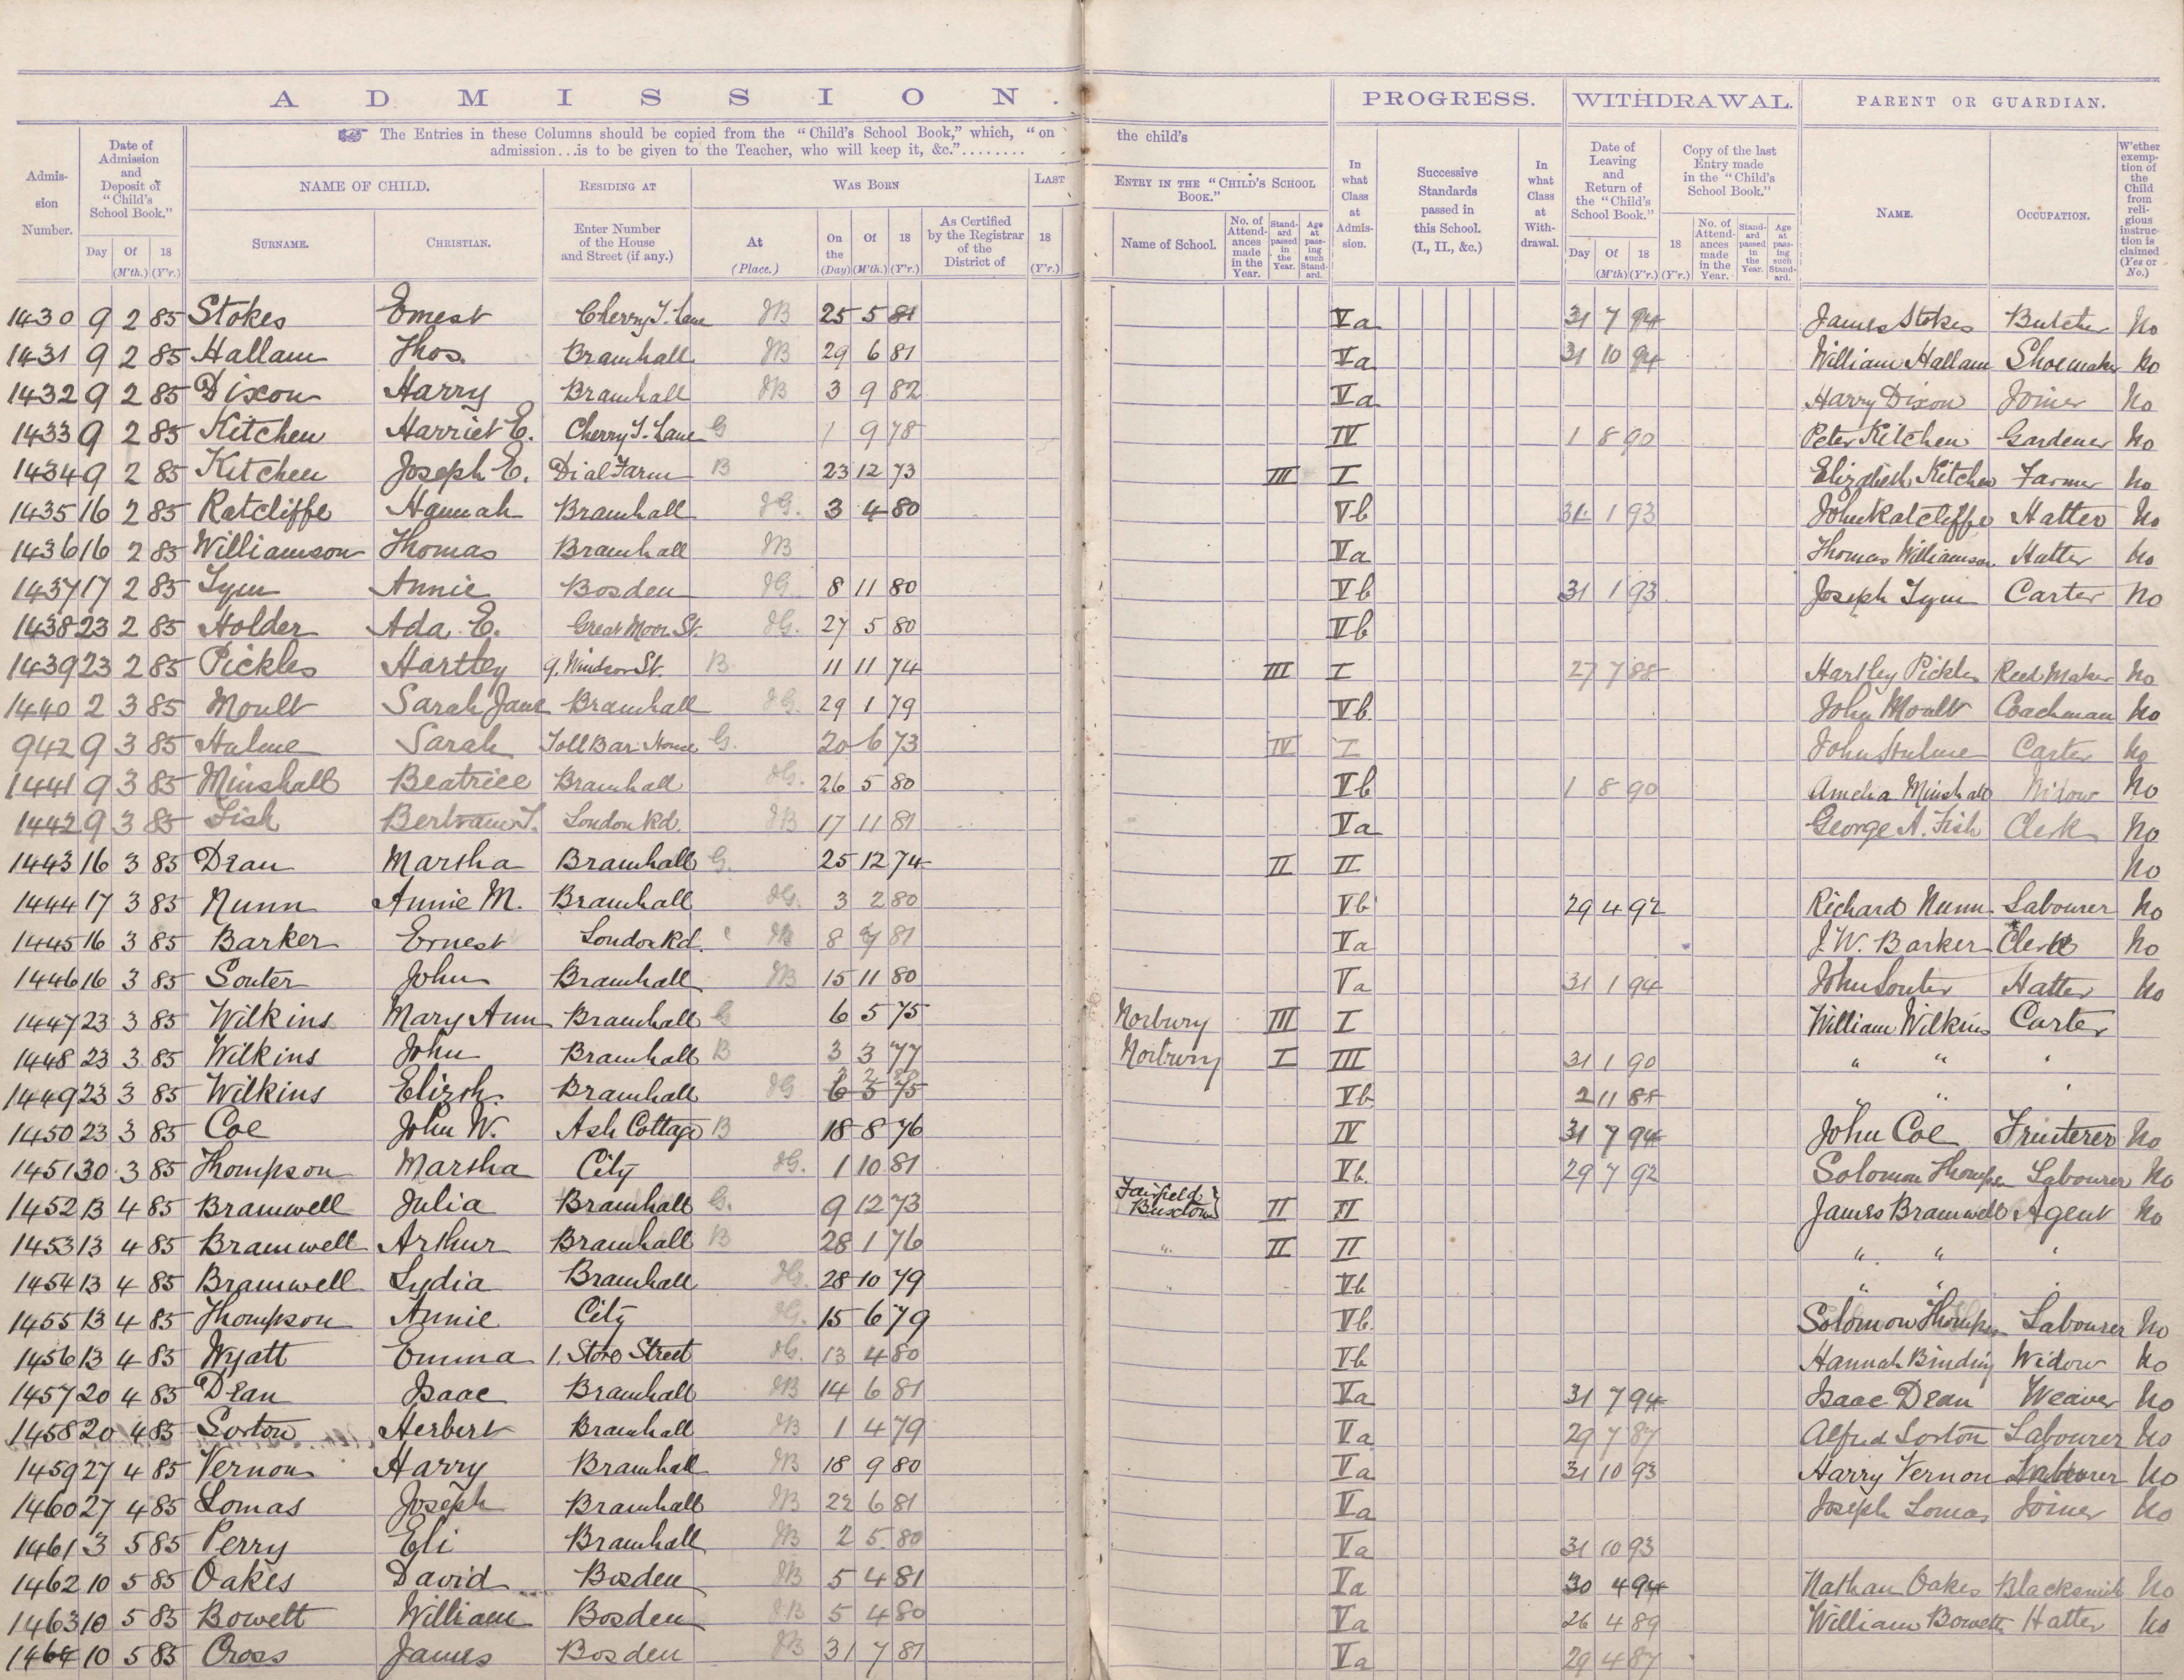 ADMISSION.
PROGRESS. WITHDRAWAL. PARENT OR GUARDIAN.
The Entries in these Columns should be copied from the "Child's School Book," which, "on the child's
admission...is to be given to the Teacher, who will keep it, &c."........
Admission Number. Date of Admission and Deposit of "Child's School Book." Day Of (M'th.) 18 (Y'r.)
NAME OF CHILD. SURNAME. CHRISTIAN.
RESIDING AT Enter Number of the House and Street (if any.)
WAS BORN At (Place.) On the (Day) Of (M'th.) 18 (Y'r.) As Certified by the Registrar of the District of
LAST 18 (Y'r.)
ENTRY IN THE "CHILD'S SCHOOL BOOK." Name of School. No. of Attendances made in the Year. Standard passed in the Year. Age at passing such Standard.
In what Class at Admission. Successive Standards passed in this School. (I., II., &c.) In what Class at Withdrawal.
Date of Leaving and Return of the "Child's School Book." Day Of (M'th) 18 (Y'r.)
Copy of the last Entry made in the "Child's School Book." 18 (Y'r.) No. of Attendances made in the Year. Standard passed in the Year. Age at passing such Standard.
NAME. OCCUPATION. W'ether exemption of the Child from religious instruction is claimed (Yes or No.)
1430 9 2 85 Stokes Ernest Cherry T. Lane JB 25 5 81 Va 31 7 94 James Stokes Butcher No
1431 9 2 85 Hallam Thos. Bramhall JB 29 6 81 Va 31 10 94 William Hallam Shoemaker No
1432 9 2 85 Dixon Harry Bramhall JB 3 9 82 Va Harry Dixon Joiner No
1433 9 2 85 Kitchen Harriet E. Cherry T. Lane G 1 9 78 IV 1 8 90 Peter Kitchen Gardener No
1434 9 2 85 Kitchen Joseph E. Dial Farm B 23 12 73 III I Elizabeth Kitchen Farmer No
1435 16 2 85 Ratcliffe Hannah Bramhall JG. 3 4 80 Vb 31 1 93 John Ratcliffe Hatter No
1436 16 2 85 Williamson Thomas Bramhall JB Va Thomas Williamson Hatter No
1437 17 2 85 Tym Annie Bosden JG 8 11 80 Vb 31 1 93 Joseph Tym Carter No
1438 23 2 85 Holder Ada E. Great Moor St. JG. 27 5 80 Vb
1439 23 2 85 Pickles Hartley 9. Windsor St. B 11 11 74 III I 27 7 88 Hartley Pickles Reed Maker No
1440 2 3 85 Moult Sarah Jane Bramhall JG. 29 1 79 Vb. John Moult Coachman No
942 9 3 85 Hulme Sarah Toll Bar House G. 20 6 73 IV I John Hulme Carter No
1441 9 3 85 Minshall Beatrice Bramhall JG. 26 5 80 Vb 1 8 90 Amelia Minshall Widow No
1442 9 3 85 Fish Bertram T. London Rd. JB 17 11 81 Va George A. Fish Clerk No
1443 16 3 85 Dean Martha Bramhall G. 25 12 74 II II No
1444 17 3 85 Nunn Annie M. Bramhall JG. 3 2 80 Vb 29 4 92 Richard Nunn Labourer No
1445 16 3 85 Barker Ernest London Rd. JB 8 81 Va J. W. Barker Clerk No
1446 16 3 85 Souter John Bramhall JB 15 11 80 Va 31 1 94 John Souter Hatter No
1447 23 3 85 Wilkins Mary Ann Bramhall G 6 5 75 Norbury III I William Wilkins Carter
1448 23 3 85 Wilkins John Bramhall B 3 3 77 Norbury I III 31 1 90 " " "
1449 23 3 85 Wilkins Elizth. Bramhall JG 6 5 75 Vb 2 11 88 "
1450 23 3 85 Coe John W. Ash Cottage B 18 8 76 IV 31 7 94 John Coe Fruiterer No
1451 30 3 85 Thompson Martha City JG. 1 10 81 Vb. 29 7 92 Solomon Thompson Labourer No
1452 13 4 85 Bramwell Julia Bramhall G. 9 12 73 Fairfield Buxton II II James Bramwell Agent No
1453 13 4 85 Bramwell Arthur Bramhall B 28 1 76 " II II " " "
1454 13 4 85 Bramwell Lydia Bramhall JG. 28 10 79 " Vb " " "
1455 13 4 85 Thompson Annie City JG. 15 6 79 Vb. Solomon Thompson Labourer No
1456 13 4 85 Wyatt Emma 1. Store Street JG. 13 4 80 Vb Hannah Binding Widow No
1457 20 4 85 Dean Isaac Bramhall JB 14 6 81 Va 31 7 94 Isaac Dean Weaver No
1458 20 4 85 Sorton Herbert Bramhall JB 1 4 79 Va 29 7 87 Alfred Sorton Labourer No
1459 27 4 85 Vernon Harry Bramhall JB 18 9 80 Va 31 10 93 Harry Vernon Labourer No
1460 27 4 85 Lomas Joseph Bramhall JB 22 6 81 Va Joseph Lomas Joiner No
1461 3 5 85 Perry Eli Bramhall JB 2 5 80 Va 31 10 93
1462 10 5 85 Oakes David Bosden JB 5 4 81 Va 30 4 94 Nathan Oakes Blacksmith No
1463 10 5 85 Bowett William Bosden JB 5 4 80 Va 26 4 89 William Bowett Hatter No
1464 10 5 85 Cross James Bosden JB 31 7 81 Va 29 4 87